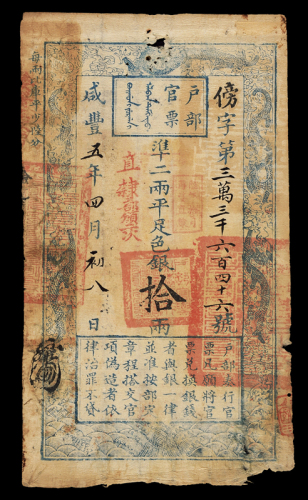 戶部
官票
傍字第三萬三千六百四十六號
準二兩平足色銀拾兩
咸豐五年四月初八日
戶部奏行官
票凡願將官
票兌換銀錢
者與銀一律
並准按部定
章程搭交官
項偽造者依
律治罪不貸